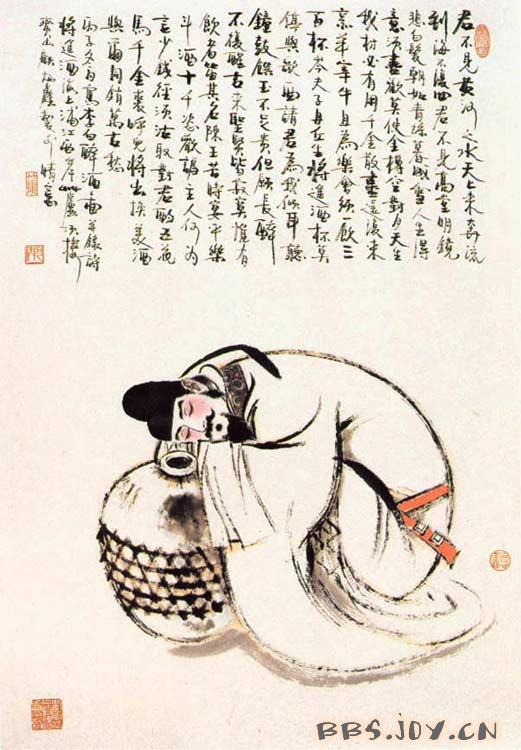 君不見黃河之水天上來奔流
到海不復回君不見高堂明鏡
悲白髮朝如青絲暮成雪人生得
意須盡歡莫使金樽空對月天生
我材必有用千金散盡還復來
烹羊宰牛且為樂會須一飲三
百杯岑夫子丹丘生將進酒杯莫
停與歌一曲請君為我傾耳聽
鐘鼓饌玉不足貴但願長醉
不復醒古來聖賢皆寂寞惟有
飲者留其名陳王昔時宴平樂
斗酒十千恣歡謔主人何為
言少錢徑須沽取對君酌五花
馬千金裘呼兒將出換美酒
與爾同銷萬古愁
丙子冬月寫李白醉酒圖並錄詩
將進酒
BBS.JOY.CN